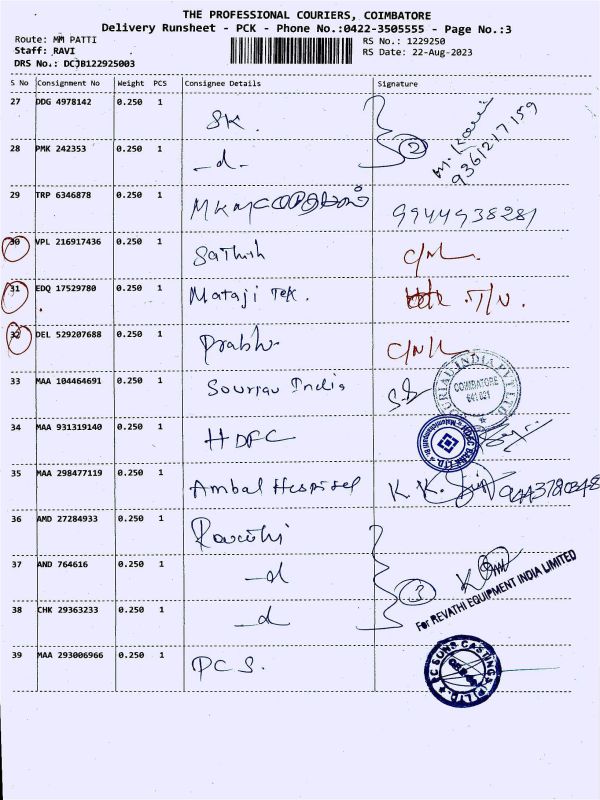 THE PROFESSIONAL COURIERS, COIMBATORE
Delivery Runsheet - PCK - Phone No.:0422-3505555 - Page No.:3
Route: MM PATTI
Staff: RAVI
DRS No.: DCJB122925003
RS No.: 1229250
RS Date: 22-Aug-2023
S No Consignment No Weight PCS Consignee Details Signature
27 DDG 4978142 0.250 1 SK.
28 PMK 242353 0.250 1 -d-
2
9361217159
29 TRP 6346878 0.250 1 9944938281
30 VPL 216917436 0.250 1 Sathish
31 EDQ 17529780 0.250 1 Mataji Tek.
32 DEL 529207688 0.250 1 Prabhu
33 MAA 104464691 0.250 1 Souriau India
COIMBATORE
34 MAA 931319140 0.250 1 HDFC
HDFC BANK LTD.
35 MAA 298477119 0.250 1 Ambal Hospital
36 AMD 27284933 0.250 1 Revathi
37 AND 764616 0.250 1 -d
38 CHK 29363233 0.250 1 -d
3
For REVATHI EQUIPMENT INDIA LIMITED
39 MAA 293006966 0.250 1 PCS.